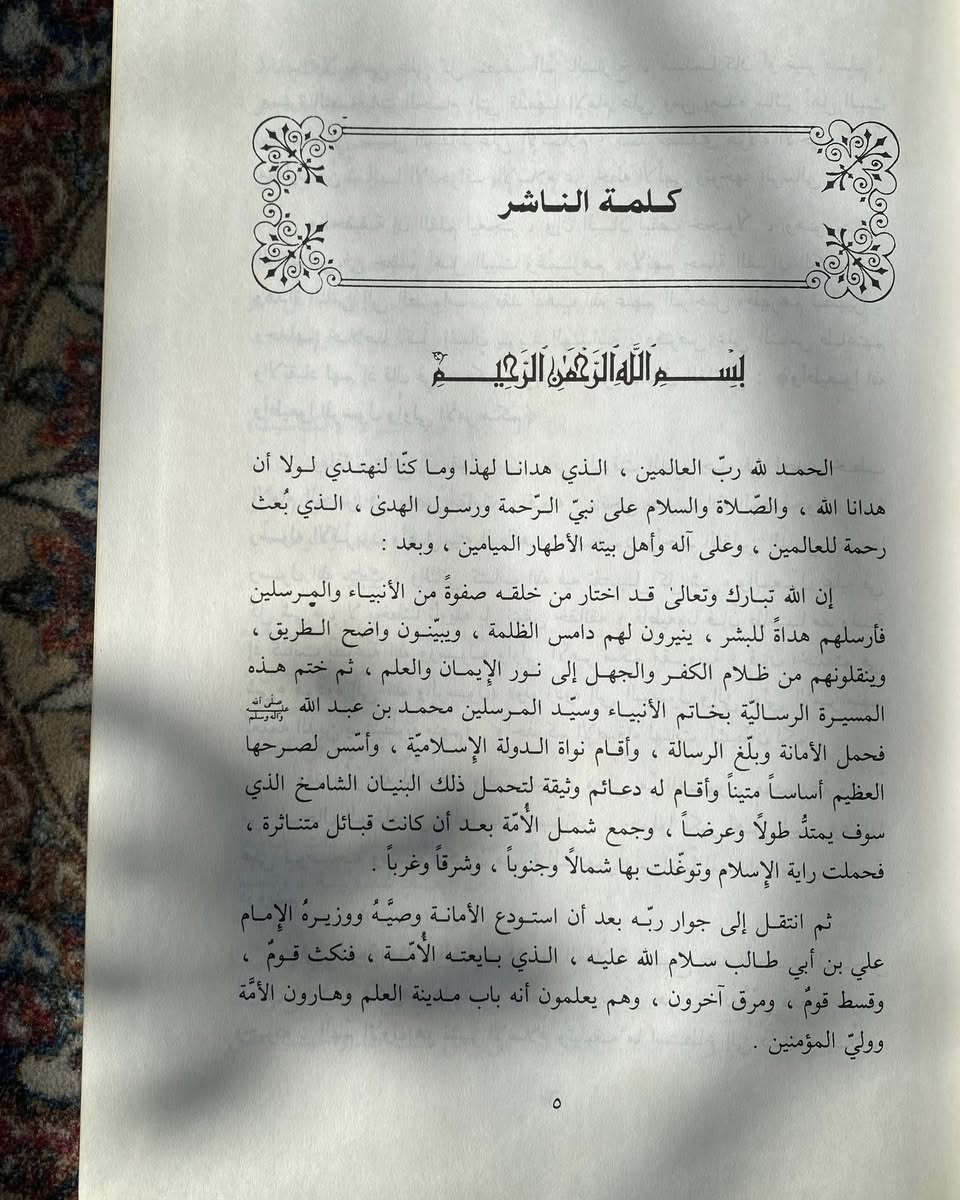 كلمة الناشر
بسم الله الرحمن الرحيم
الحمد لله ربّ العالمين ، الذي هدانا لهذا وما كنّا لنهتدي لولا أن
هدانا الله ، والصّلاة والسلام على نبيّ الرّحمة ورسول الهدىٰ ، الذي بُعث
رحمة للعالمين ، وعلى آله وأهل بيته الأطهار الميامين ، وبعد :
إن الله تبارك وتعالىٰ قد اختار من خلقه صفوةً من الأنبياء والمرسلين
فأرسلهم هداةً للبشر ، ينيرون لهم دامس الظلمة ، ويبيّنون واضح الطريق ،
وينقلونهم من ظلام الكفر والجهل إلى نور الإِيمان والعلم ، ثم ختم هذه
المسيرة الرساليّة بخاتم الأنبياء وسيّد المرسلين محمد بن عبد الله صلّى الله عليه وآله وسلم
فحمل الأمانة وبلّغ الرسالة ، وأقام نواة الدولة الإِسلاميّة ، وأسّس لصرحها
العظيم أساساً متيناً وأقام له دعائم وثيقة لتحمل ذلك البنيان الشامخ الذي
سوف يمتدُّ طولاً وعرضاً ، وجمع شمل الأُمّة بعد أن كانت قبائل متناثرة ،
فحملت راية الإِسلام وتوغّلت بها شمالاً وجنوباً ، وشرقاً وغرباً .
ثم انتقل إلى جوار ربّه بعد أن استودع الأمانة وصيَّهُ ووزيرهُ الإِمام
علي بن أبي طالب سلام الله عليه ، الذي بايعته الأُمّة ، فنكث قومٌ ،
وقسط قومٌ ، ومرق آخرون ، وهم يعلمون أنه باب مدينة العلم وهارون الأمَّة
ووليّ المؤمنين .
٥